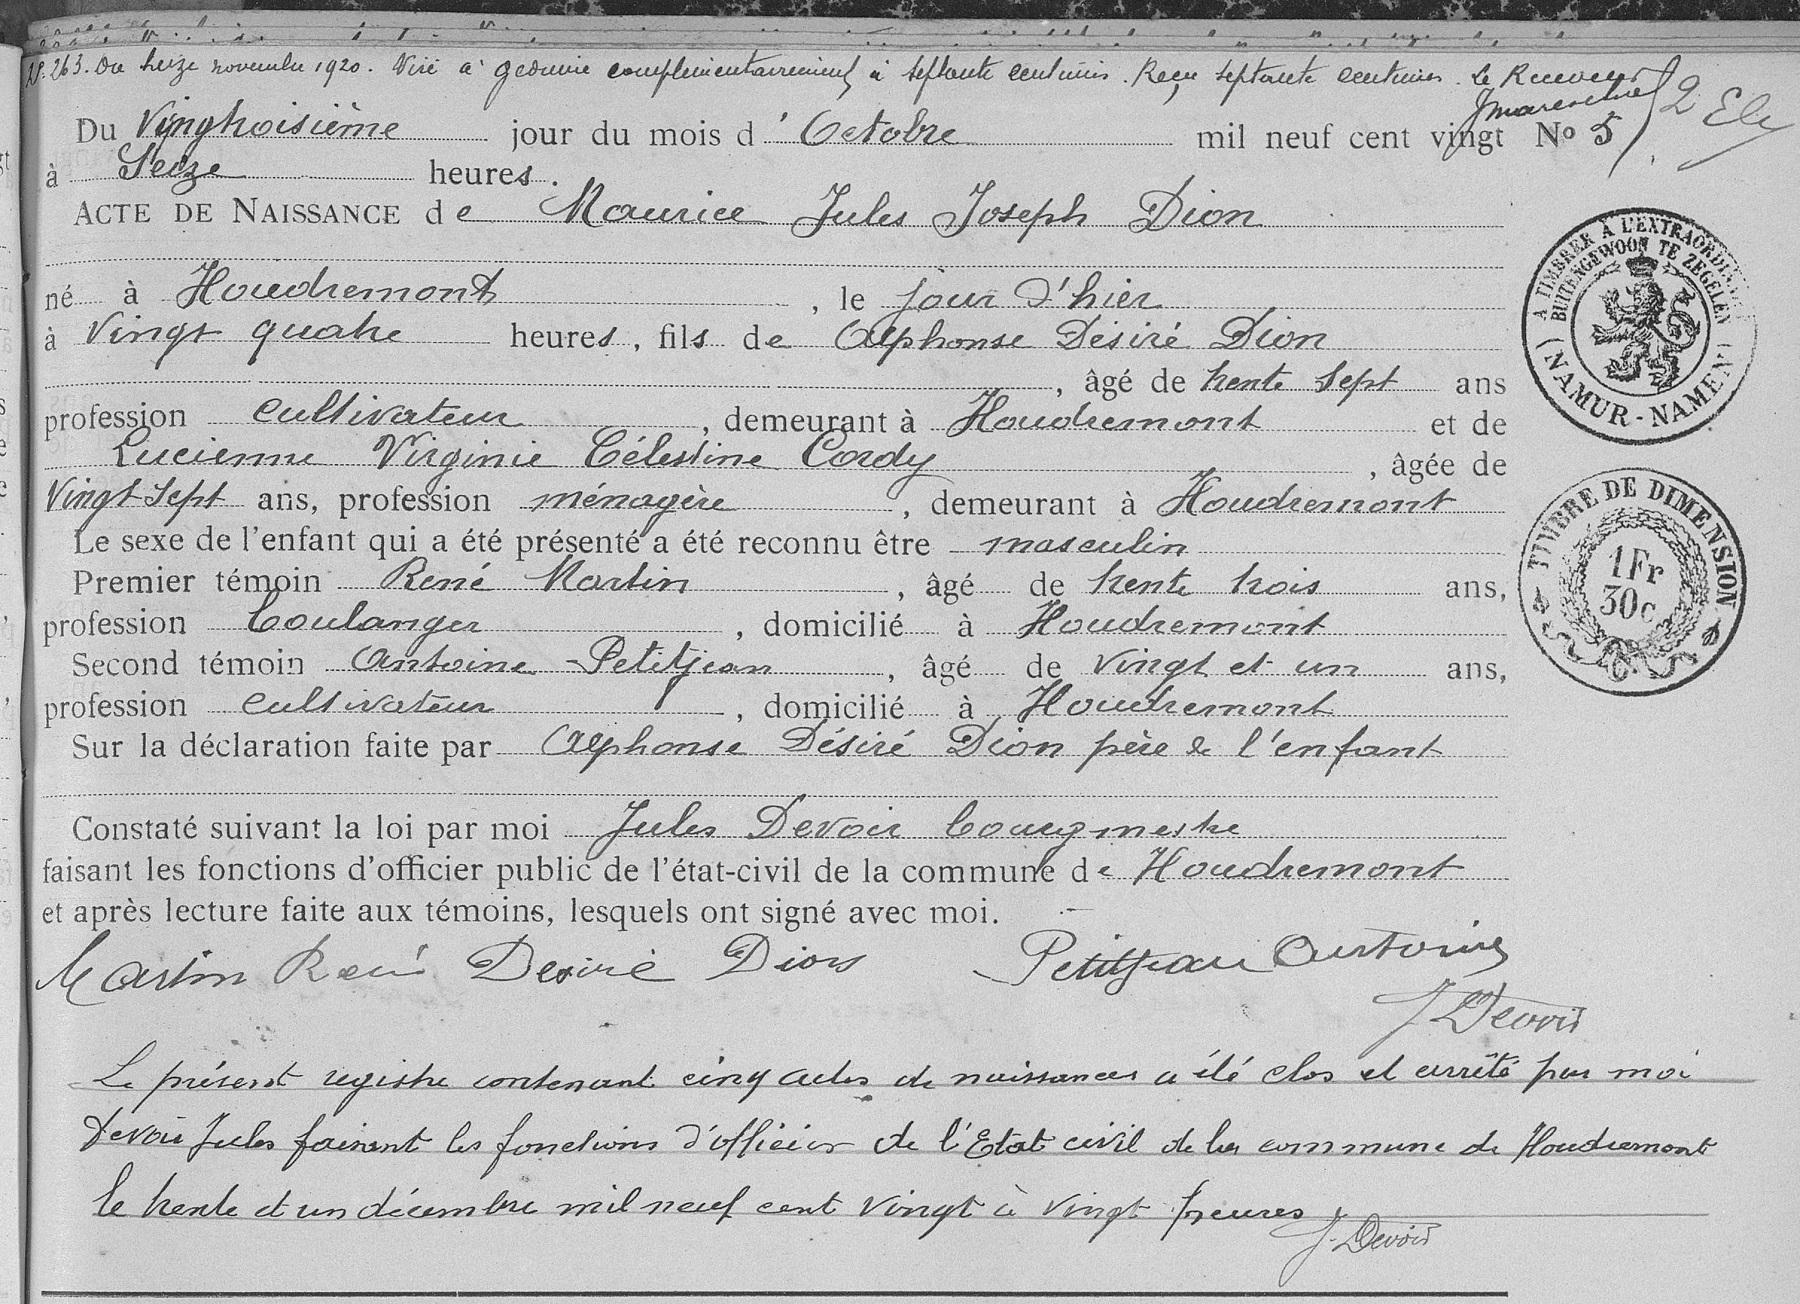 263. Du treize novembre 1920. Visé à Gedinne complémentairement à septante centimes. Reçu septante centimes. Le Receveur
Du Vingtroisième jour du mois d'Octobre mil neuf cent vingt No 5
à Seize heures.
ACTE DE NAISSANCE de Maurice Jules Joseph Dion
né à Houdremont, le jour d'hier
à Vingt quatre heures, fils de Alphonse Désiré Dion
, âgé de trente sept ans
profession cultivateur, demeurant à Houdremont et de
Lucienne Virginie Célestine Cordy, âgée de
Vingt sept ans, profession ménagère, demeurant à Houdremont
Le sexe de l'enfant qui a été présenté a été reconnu être masculin
Premier témoin René Martin, âgé de trente trois ans,
profession boulanger, domicilié à Houdremont
Second témoin Antoine Petitjean, âgé de vingt et un ans,
profession cultivateur, domicilié à Houdremont
Sur la déclaration faite par Alphonse Désiré Dion père de l'enfant
Constaté suivant la loi par moi Jules Devoir bourgmestre
faisant les fonctions d'officier public de l'état-civil de la commune de Houdremont
et après lecture faite aux témoins, lesquels ont signé avec moi.
Martin René Desiré Dion Petitjean Antoine
J Devoir
Le présent registre contenant cinq actes de naissances a été clos et arrêté par moi
Devoir Jules faisant les fonctions d'officier de l'Etat civil de la commune de Houdremont
le trente et un décembre mil neuf cent vingt à vingt heures
J. Devoir
A TIMBRER A L'EXTRAORDINAIRE
BUITENGEWOON TE ZEGELEN
NAMUR-NAMEN
TIMBRE DE DIMENSION
1Fr
30c